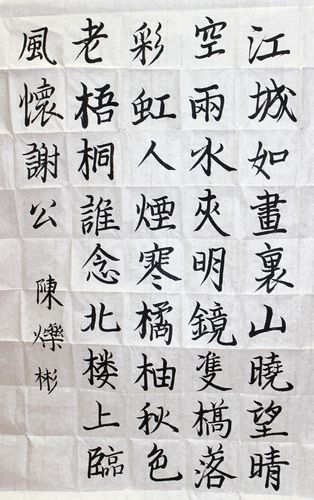 江城如畫裏山曉望晴
空雨水夾明鏡隻槗落
彩虹人煙寒橘柚秋色
老梧桐誰念北楼上臨
風懷謝公
陳爍彬